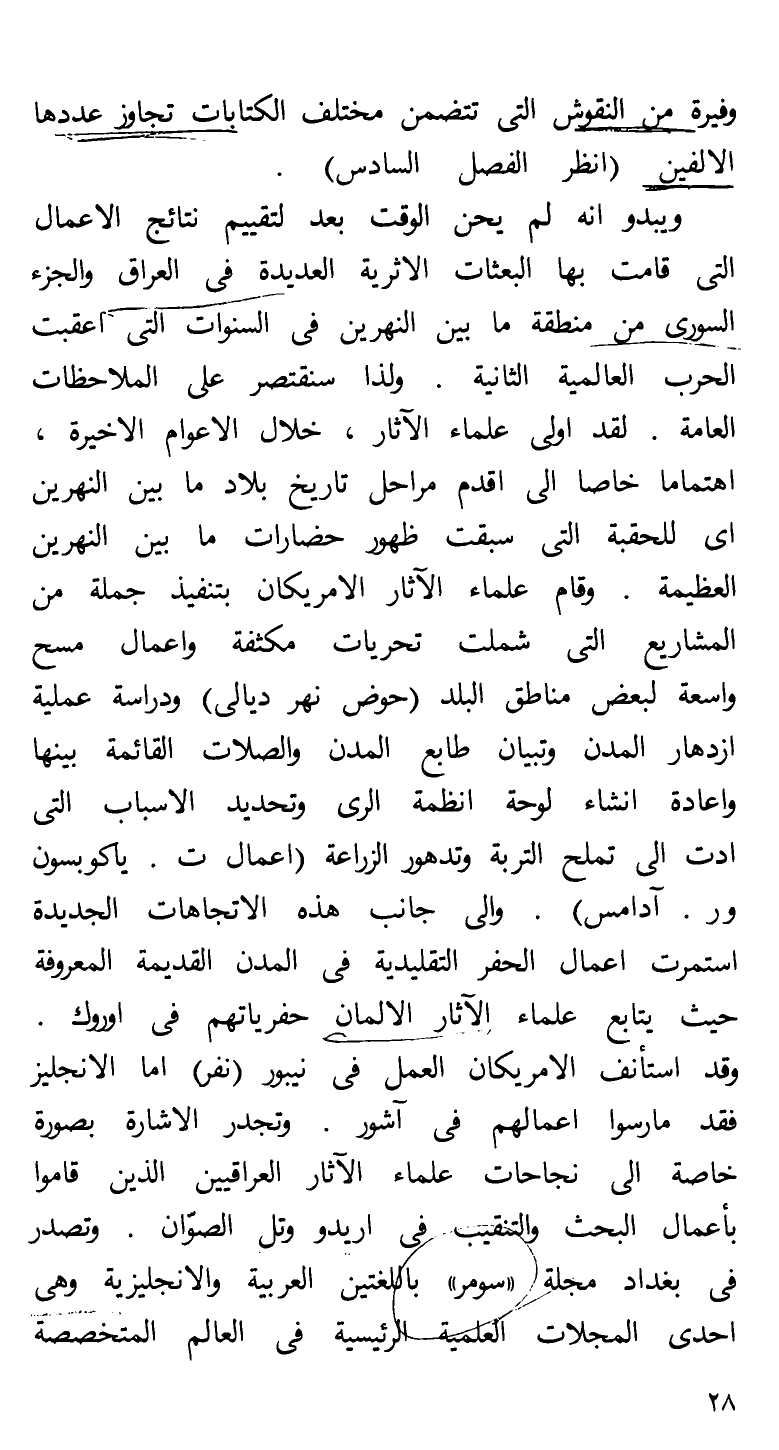 وفيرة من النقوش التى تتضمن مختلف الكتابات تجاوز عددها
الالفين (انظر الفصل السادس) .
ويبدو انه لم يحن الوقت بعد لتقييم نتائج الاعمال
التى قامت بها البعثات الاثرية العديدة فى العراق والجزء
السورى من منطقة ما بين النهرين فى السنوات التى اعقبت
الحرب العالمية الثانية . ولذا سنقتصر على الملاحظات
العامة . لقد اولى علماء الآثار ، خلال الاعوام الاخيرة ،
اهتماما خاصا الى اقدم مراحل تاريخ بلاد ما بين النهرين
اى للحقبة التى سبقت ظهور حضارات ما بين النهرين
العظيمة . وقام علماء الآثار الامريكان بتنفيذ جملة من
المشاريع التى شملت تحريات مكثفة واعمال مسح
واسعة لبعض مناطق البلد (حوض نهر ديالى) ودراسة عملية
ازدهار المدن وتبيان طابع المدن والصلات القائمة بينها
واعادة انشاء لوحة انظمة الرى وتحديد الاسباب التى
ادت الى تملح التربة وتدهور الزراعة (اعمال ت . ياكوبسون
ور . آدامس) . والى جانب هذه الاتجاهات الجديدة
استمرت اعمال الحفر التقليدية فى المدن القديمة المعروفة
حيث يتابع علماء الآثار الالمان حفرياتهم فى اوروك .
وقد استأنف الامريكان العمل فى نيبور (نفر) اما الانجليز
فقد مارسوا اعمالهم فى آشور . وتجدر الاشارة بصورة
خاصة الى نجاحات علماء الآثار العراقيين الذين قاموا
بأعمال البحث والتنقيب فى اريدو وتل الصوّان . وتصدر
فى بغداد مجلة «سومر» باللغتين العربية والانجليزية وهى
احدى المجلات العلمية الرئيسية فى العالم المتخصصة
٢٨